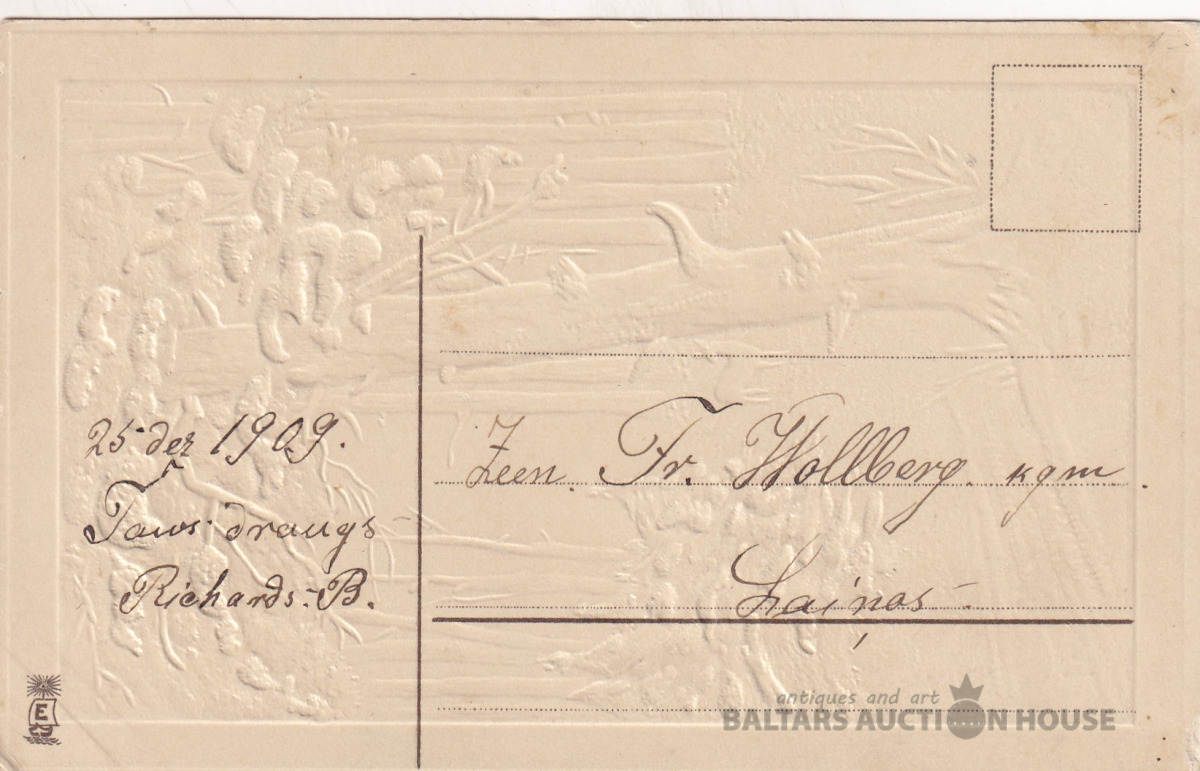 25 dez 1909.
Taws draugs
Richards. B.
Zeen. Fr. Wollberg. kgm.
Laiņos
E
antiques and art
BALTARS AUCTION HOUSE